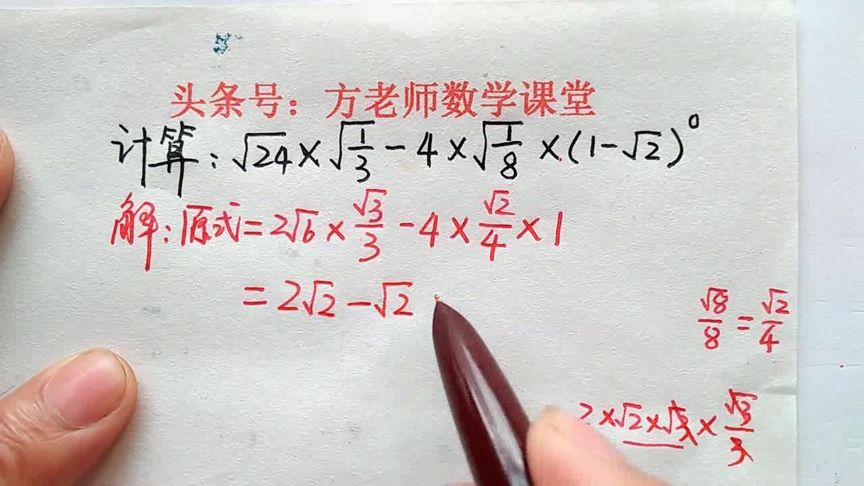 头条号：方老师数学课堂
计算：√24×√(1/3)-4×√(1/8)×(1-√2)⁰
解：原式=2√6×√3/3-4×√2/4×1
=2√2-√2
√8/8=√2/4
2×√2×√3×√3/3